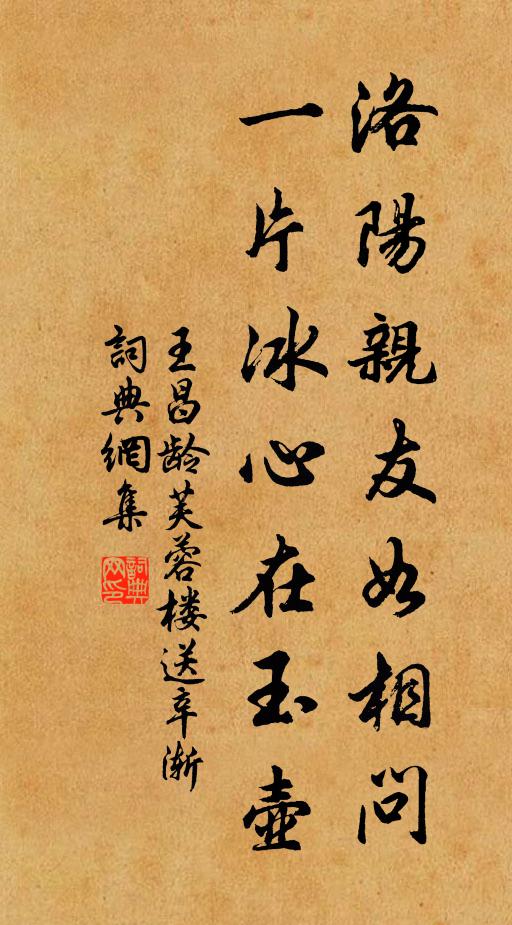 洛陽親友如相問
一片冰心在玉壺
王昌龄芙蓉楼送辛渐
詞典網集
詞典網印